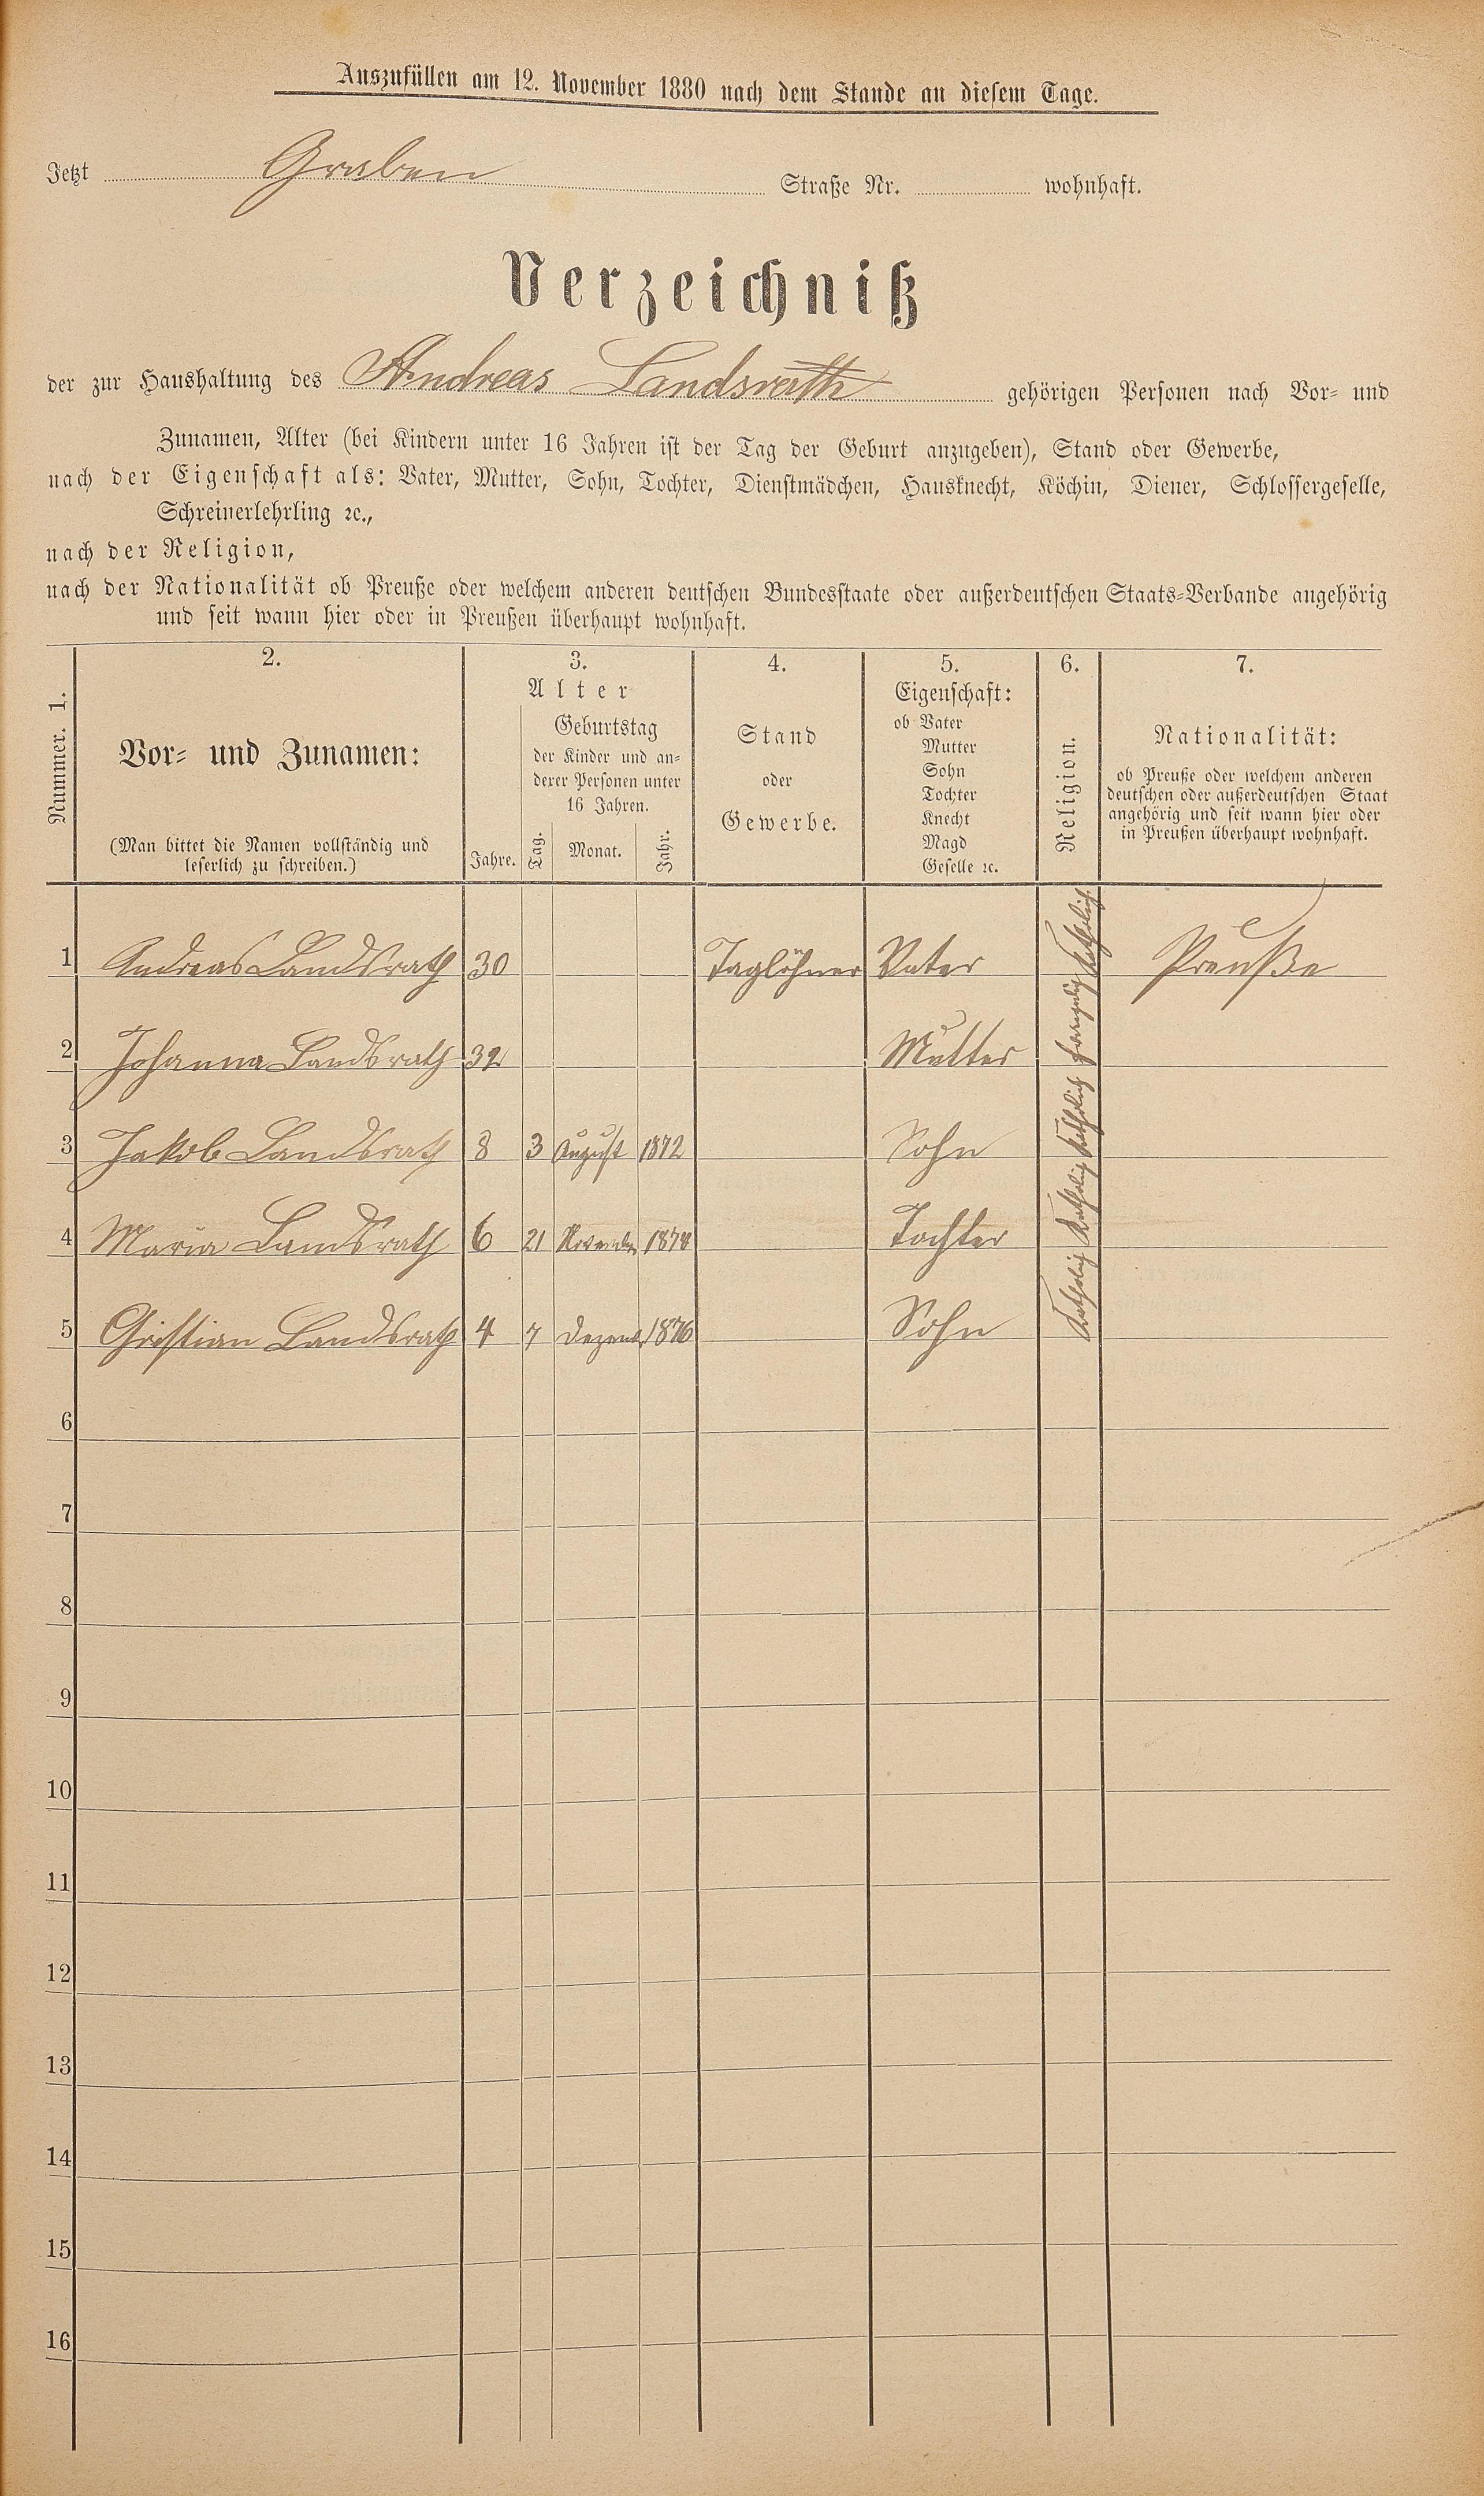 Auszufüllen am 12. November 1880 nach dem Stande an diesem Tage.
Jetzt Graben Straße Nr. wohnhaft.
Verzeichniß
der zur Haushaltung des Andreas Landsrath gehörigen Personen nach Vor- und
Zunamen, Alter (bei Kindern unter 16 Jahren ist der Tag der Geburt anzugeben), Stand oder Gewerbe,
nach der Eigenschaft als: Vater, Mutter, Sohn, Tochter, Dienstmädchen, Hausknecht, Köchin, Diener, Schlossergeselle,
Schreinerlehrling ꝛc.,
nach der Religion,
nach der Nationalität ob Preuße oder welchem anderen deutschen Bundesstaate oder außerdeutschen Staats-Verbande angehörig
und seit wann hier oder in Preußen überhaupt wohnhaft.
Nummer. 1.
2.
Vor- und Zunamen:
(Man bittet die Namen vollständig und
leserlich zu schreiben.)
3.
Alter
Jahre.
Geburtstag
der Kinder und an-
derer Personen unter
16 Jahren.
Tag. Monat. Jahr.
4.
Stand
oder
Gewerbe.
5.
Eigenschaft:
ob Vater
Mutter
Sohn
Tochter
Knecht
Magd
Geselle ꝛc.
6.
Religion.
7.
Nationalität:
ob Preuße oder welchem anderen
deutschen oder außerdeutschen Staat
angehörig und seit wann hier oder
in Preußen überhaupt wohnhaft.
1 Andreas Landsrath 30 Taglöhner Vater katholich Preuße
2 Johanna Landsrath 32 Mutter
3 Jakob Landsrath 8 3 August 1872 Sohn katholich
4 Maria Landsrath 6 21 November Tochter katholich
5 Christian Landsrath 4 7 Dezemb 1876 Sohn katholich
6
7
8
9
10
11
12
13
14
15
16